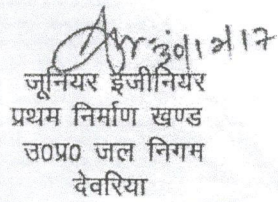 30/12/17
जूनियर इंजीनियर
प्रथम निर्माण खण्ड
उ०प्र० जल निगम
देवरिया